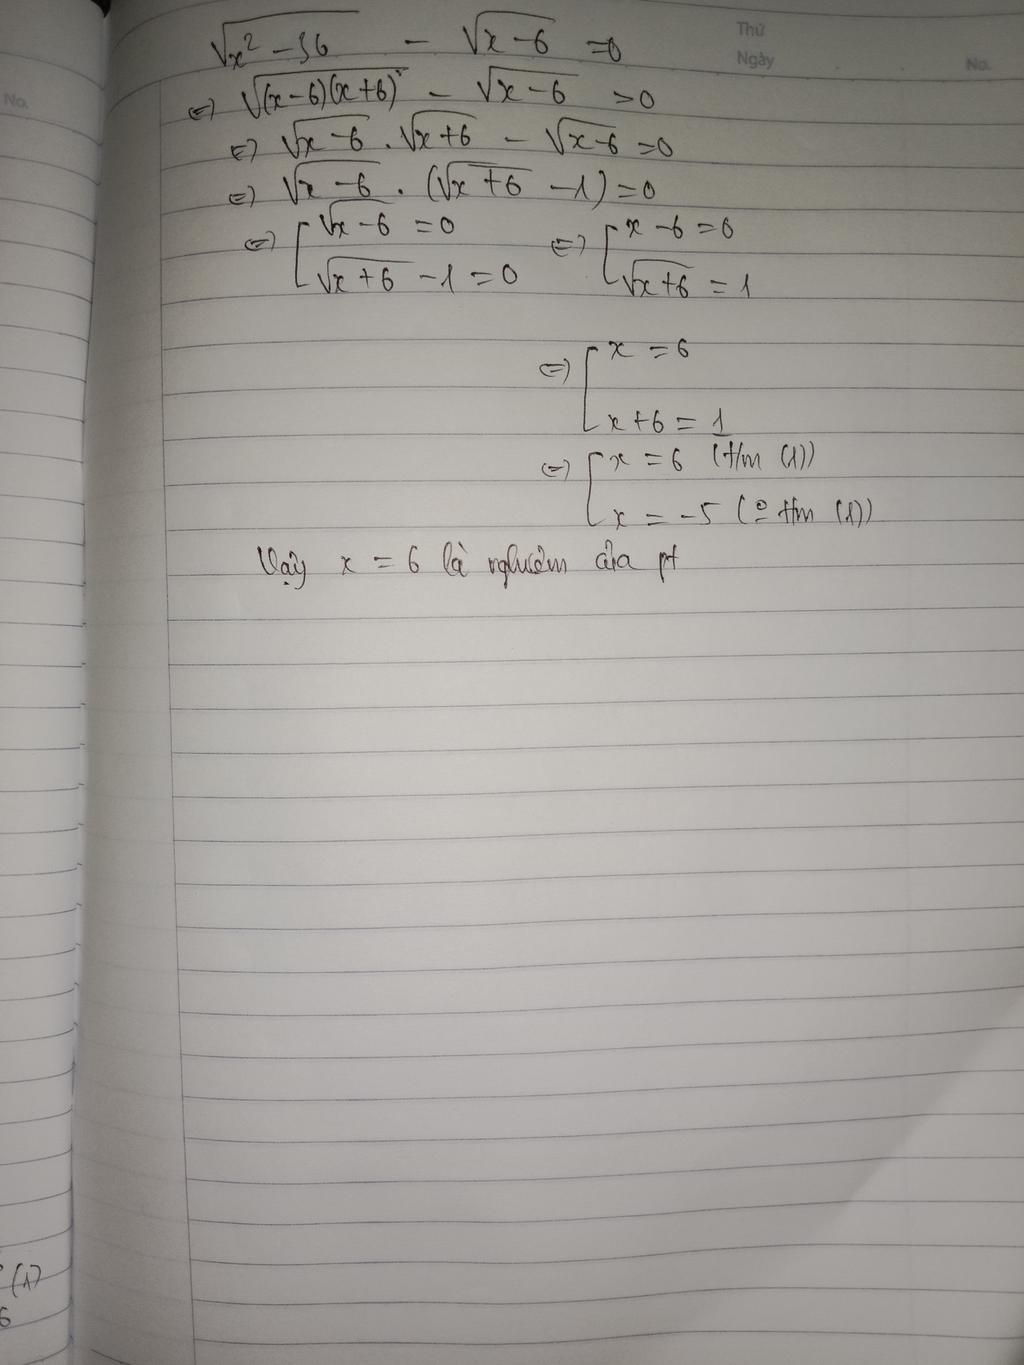 Thứ
Ngày
No.
No.
√(x² - 36) - √(x-6) = 0
⇔ √((x-6)(x+6)) - √(x-6) = 0
⇔ √(x-6) . √(x+6) - √(x-6) = 0
⇔ √(x-6) . (√(x+6) - 1) = 0
⇔ [ √(x-6) = 0 ⇔ [ x - 6 = 0
√(x+6) - 1 = 0 √(x+6) = 1
⇔ [ x = 6
x + 6 = 1
⇔ [ x = 6 (t/m (1))
x = -5 (t/m (1))
Vậy x = 6 là nghiệm của pt
(1)
6